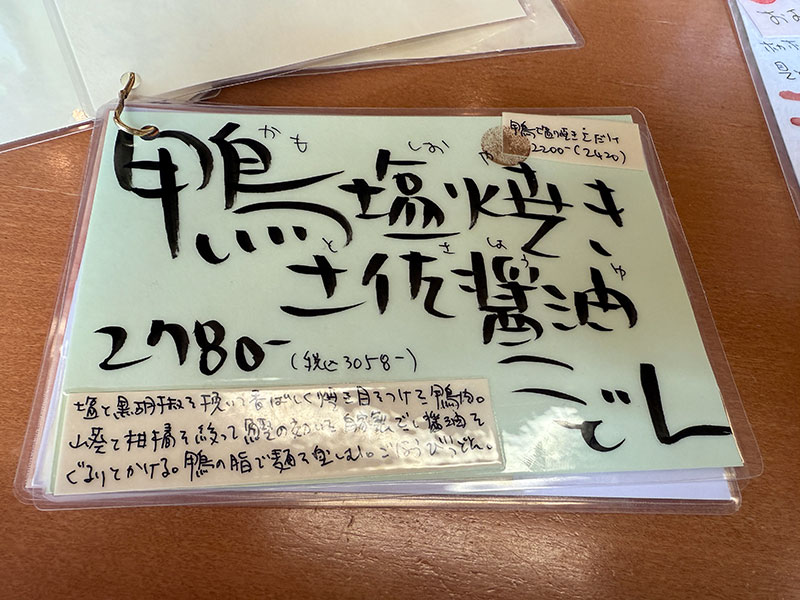 鴨塩焼き
かも しお や
土佐醤油
とさ しょうゆ
うどん
2780-
(税込3058-)
鴨塩焼きだけ
2200-(2420)
塩と黒胡椒を挽いて香ばしく焼き目をつけて鴨肉。
山葵と柑橘を絞って鰹の効いた自家製だし醤油を
ぐるりとかける。鴨の脂で麺を楽しむ。ごほうびうどん。